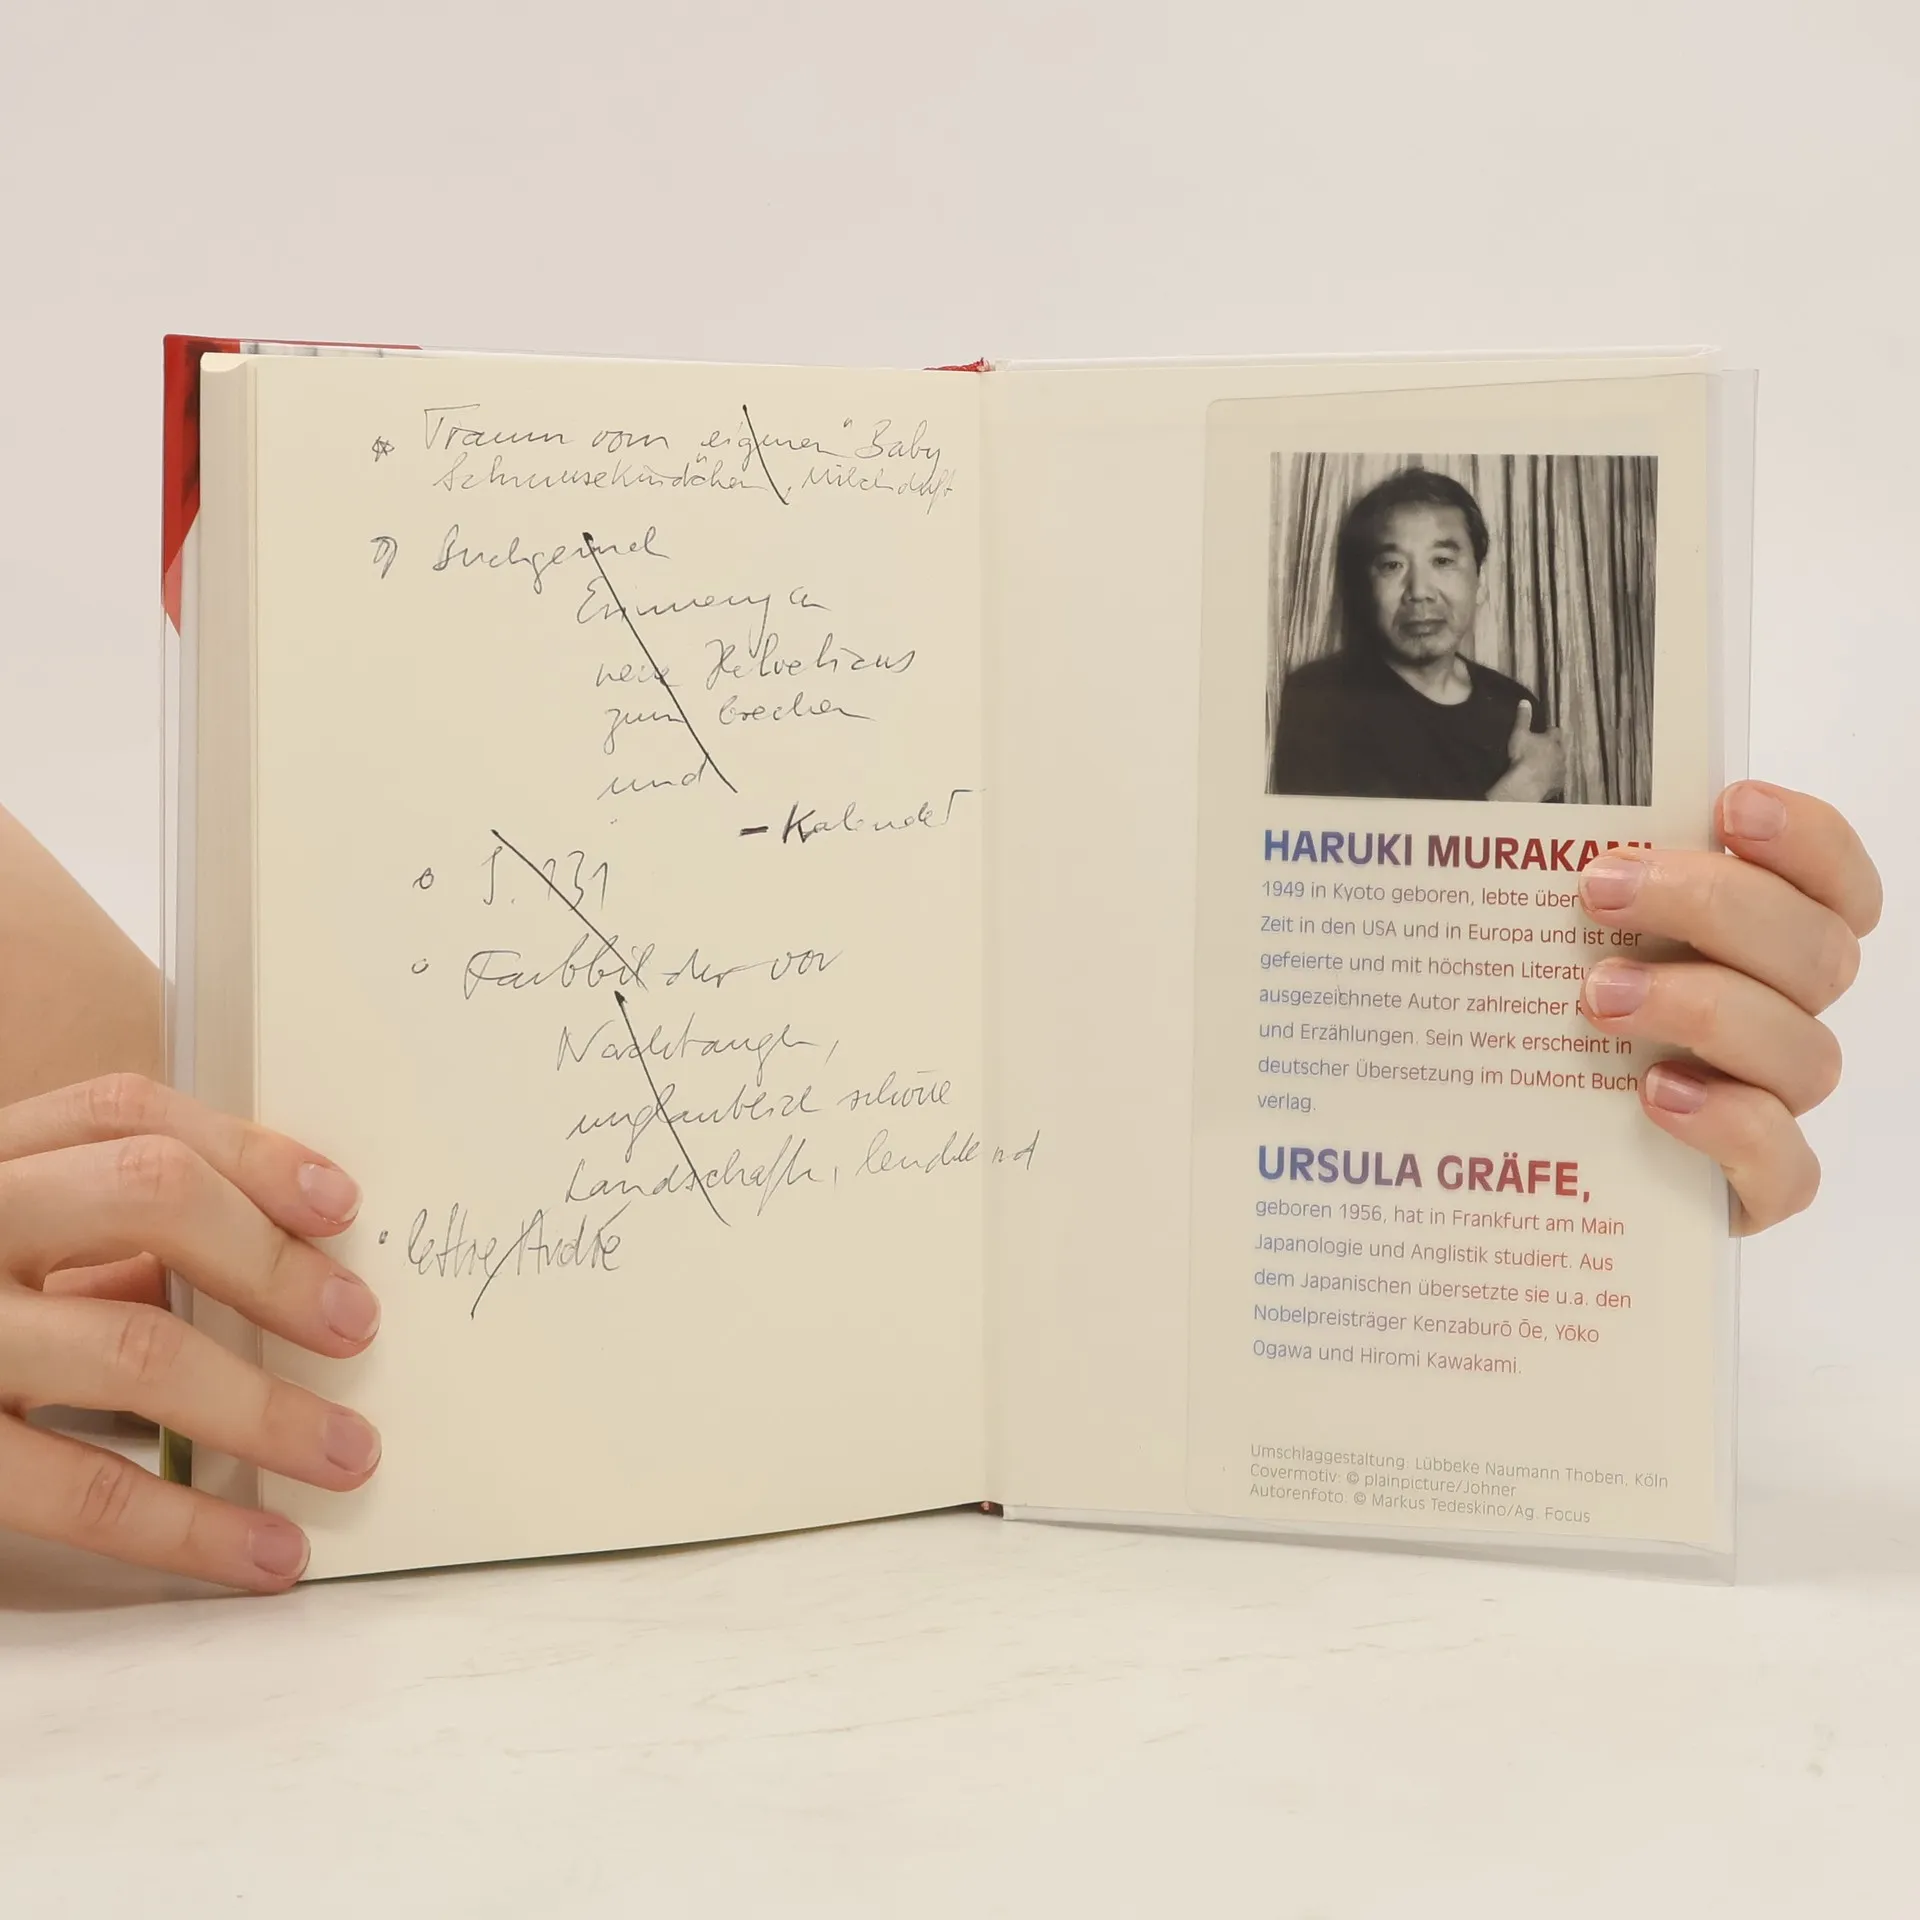 Traum vom "eigenen" Baby
Schmusekindchen, Milchduft
Buchgeruch
Erinnerung an
neue Helvetiaus
zum brechen
und
- Kalender
S. 131
Farbbilder vor
Nachtaugen,
unglaublich schöne
Landschaften, leuchtend
lettre André
HARUKI MURAKAMI
1949 in Kyoto geboren, lebte über
Zeit in den USA und in Europa und ist der
gefeierte und mit höchsten
ausgezeichnete Autor zahlreicher
und Erzählungen. Sein Werk erscheint in
deutscher Übersetzung im DuMont Buch
verlag.
URSULA GRÄFE,
geboren 1956, hat in Frankfurt am Main
Japanologie und Anglistik studiert. Aus
dem Japanischen übersetzte sie u.a. den
Nobelpreisträger Kenzaburō Ōe, Yōko
Ogawa und Hiromi Kawakami.
Umschlaggestaltung: Lübbeke Naumann Thoben, Köln
Covermotiv: © plainpicture/Johner
Autorenfoto: © Markus Tedeskino/Ag. Focus